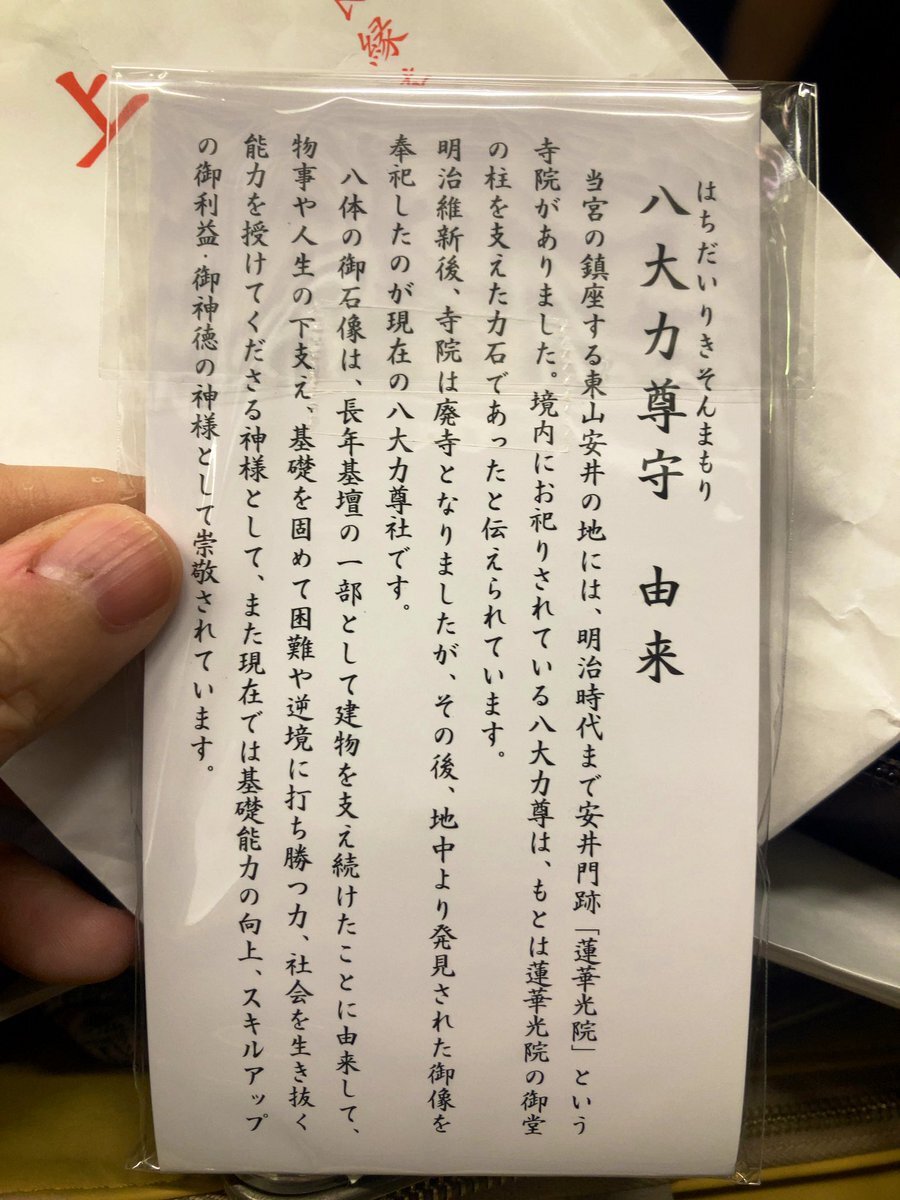 はちだいりきそんまもり
八大力尊守　由来
当宮の鎮座する東山安井の地には、明治時代まで安井門跡「蓮華光院」という
寺院がありました。境内にお祀りされている八大力尊は、もとは蓮華光院の御堂
の柱を支えた力石であったと伝えられています。
明治維新後、寺院は廃寺となりましたが、その後、地中より発見された御像を
奉祀したのが現在の八大力尊社です。
八体の御石像は、長年基壇の一部として建物を支え続けたことに由来して、
物事や人生の下支え、基礎を固めて困難や逆境に打ち勝つ力、社会を生き抜く
能力を授けてくださる神様として、また現在では基礎能力の向上、スキルアップ
の御利益·御神徳の神様として崇敬されています。
縁